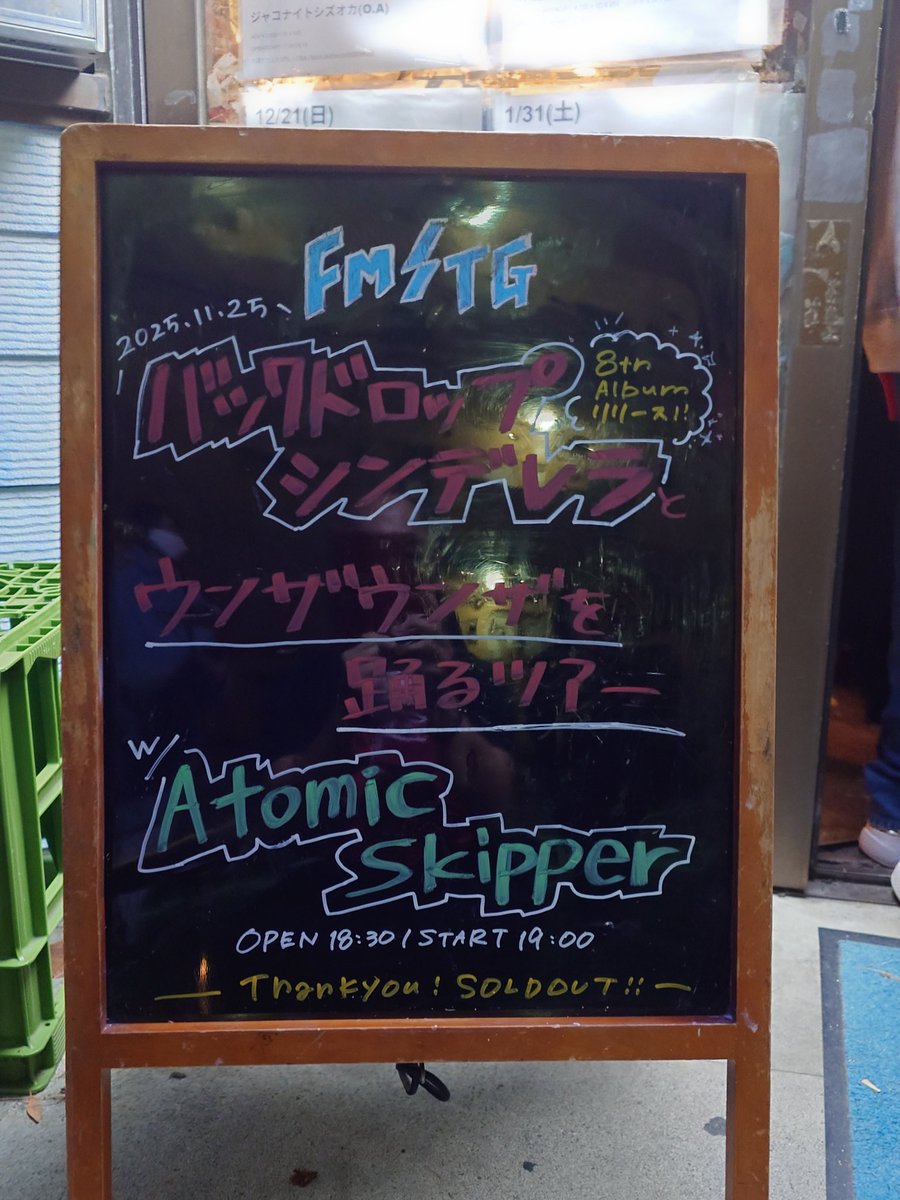 ジャコナイトシズオカ(O.A)
12/21(日)
1/31(土)
FMSTG
2025.11.25、
バックドロップ
シンデレラと
8th
Album
リリース!!
ウンザウンザを
踊るツアー
w/
Atomic
Skipper
OPEN 18:30 / START 19:00
— Thankyou! SOLDOUT!! —